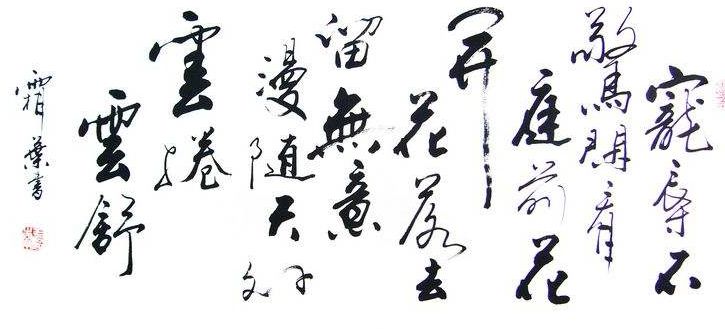 寵辱不
驚閑看
庭前花
開
花落去
留無意
漫随天外
雲捲
雲舒
霜葉書